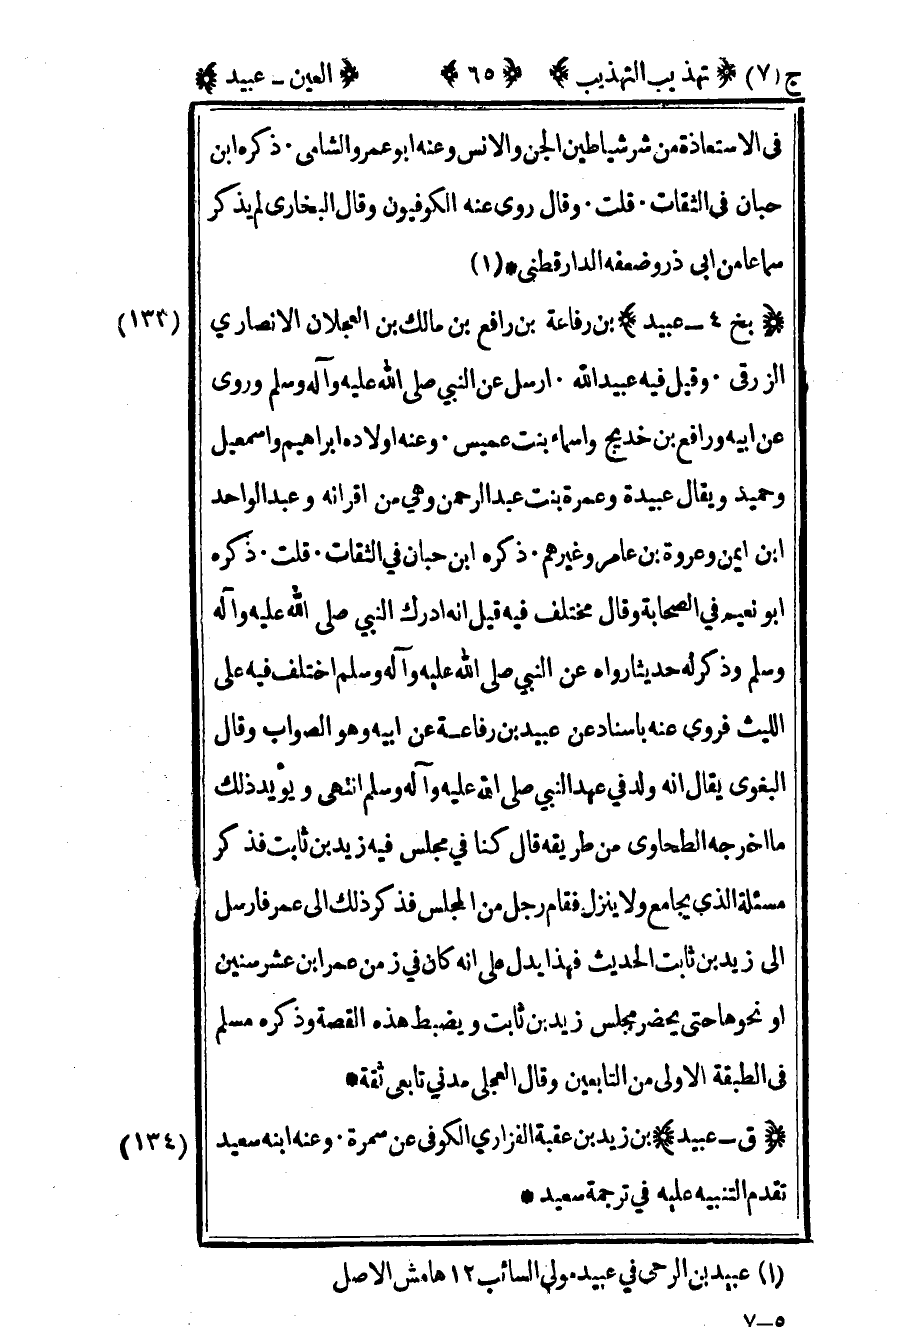 ج (٧) ﴿ تهذيب التهذيب ﴾ ﴿ ٦٥ ﴾ ﴿ العين ـ عبيد ﴾
فى الاستعاذة من شر شياطين الجن والانس وعنه ابو عمرو الشامى٠ ذكره ابن
حبان فى الثقات٠ قلت٠ وقال روى عنه الكوفيون وقال البخارى لم يذكر
سماعا من ابى ذر وضعفه الدارقطنى * (١)
﴿ بخ ٤ ـ عبيد ﴾ بن رفاعة بن رافع بن مالك بن العجلان الانصاري (١٣٣)
الزرقى ٠ وقيل فيه عبيد الله ٠ ارسل عن النبي صلى الله عليه وآله وسلم وروى
عن ابيه ورافع بن خديج واسماء بنت عميس ٠ وعنه اولاده ابراهيم واسمعيل
وحميد ويقال عبيدة وعمرة بنت عبد الرحمن وهي من اقرانه وعبد الواحد
ابن ايمن وعروة بن عامر وغيرهم ٠ ذكره ابن حبان في الثقات ٠ قلت ٠ ذكره
ابو نعيم في الصحابة وقال مختلف فيه قيل انه ادرك النبي صلى الله عليه وآله
وسلم وذكر له حديثا رواه عن النبي صلى الله عليه وآله وسلم اختلف فيه على
الليث فروى عنه باسناد عن عبيد بن رفاعة عن ابيه وهو الصواب وقال
البغوى يقال انه ولد في عهد النبي صلى الله عليه وآله وسلم انتهى ويؤيد ذلك
ما اخرجه الطحاوى من طريقه قال كنا في مجلس فيه زيد بن ثابت فذكر
مسئلة الذي يجامع ولا ينزل فقام رجل من المجلس فذكر ذلك الى عمر فارسل
الى زيد بن ثابت الحديث فهذا يدل على انه كان في زمن عمر ابن عشر سنين
او نحوها حتى يحضر مجلس زيد بن ثابت ويضبط هذه القصة وذكره مسلم
فى الطبقة الاولى من التابعين وقال العجلى مدني تابعى ثقة *
﴿ ق ـ عبيد ﴾ بن زيد بن عقبة الفزاري الكوفى عن سمرة ٠ وعنه ابنه سعيد (١٣٤)
تقدم التنبيه عليه في ترجمة سعيد *
(١) عبيد بن الرحى في عبيد مولى السائب ١٢ هامش الاصل
٥ـ٧